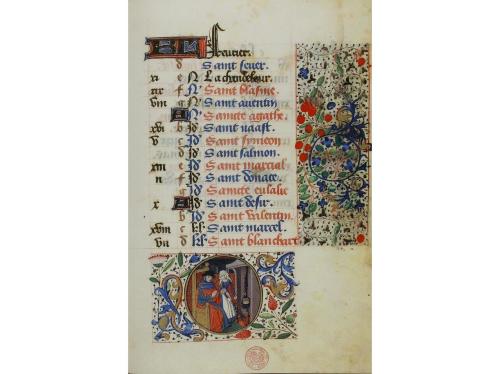 KL feurier.
d Saint seuer.
xi e N La chandeleur.
xix f N Saint blasine
viii g N Saint auentin
A N Saincte agathe.
xvi b Jd Saint vaast.
v c Jd Saint symeon
d Jd Saint salmon.
xiii e Jd Saint marcial
ii f Jd Saint donace.
g Jd Saincte eulalie
x A Jd Saint desir.
b Jd Saint valentin.
xviii c kl Saint marcel.
vii d kl Saint blanchart